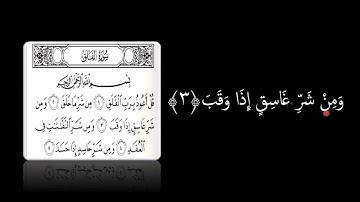 سُورَةُ الفَلَقِ
بِسْمِ اللَّهِ الرَّحْمَٰنِ الرَّحِيمِ
قُلْ أَعُوذُ بِرَبِّ الْفَلَقِ ١ مِن شَرِّ مَا خَلَقَ ٢ وَمِن
شَرِّ غَاسِقٍ إِذَا وَقَبَ ٣ وَمِن شَرِّ النَّفَّٰثَٰتِ فِي
الْعُقَدِ ٤ وَمِن شَرِّ حَاسِدٍ إِذَا حَسَدَ ٥
وَمِنْ شَرِّ غَاسِقٍ إِذَا وَقَبَ ﴿٣﴾